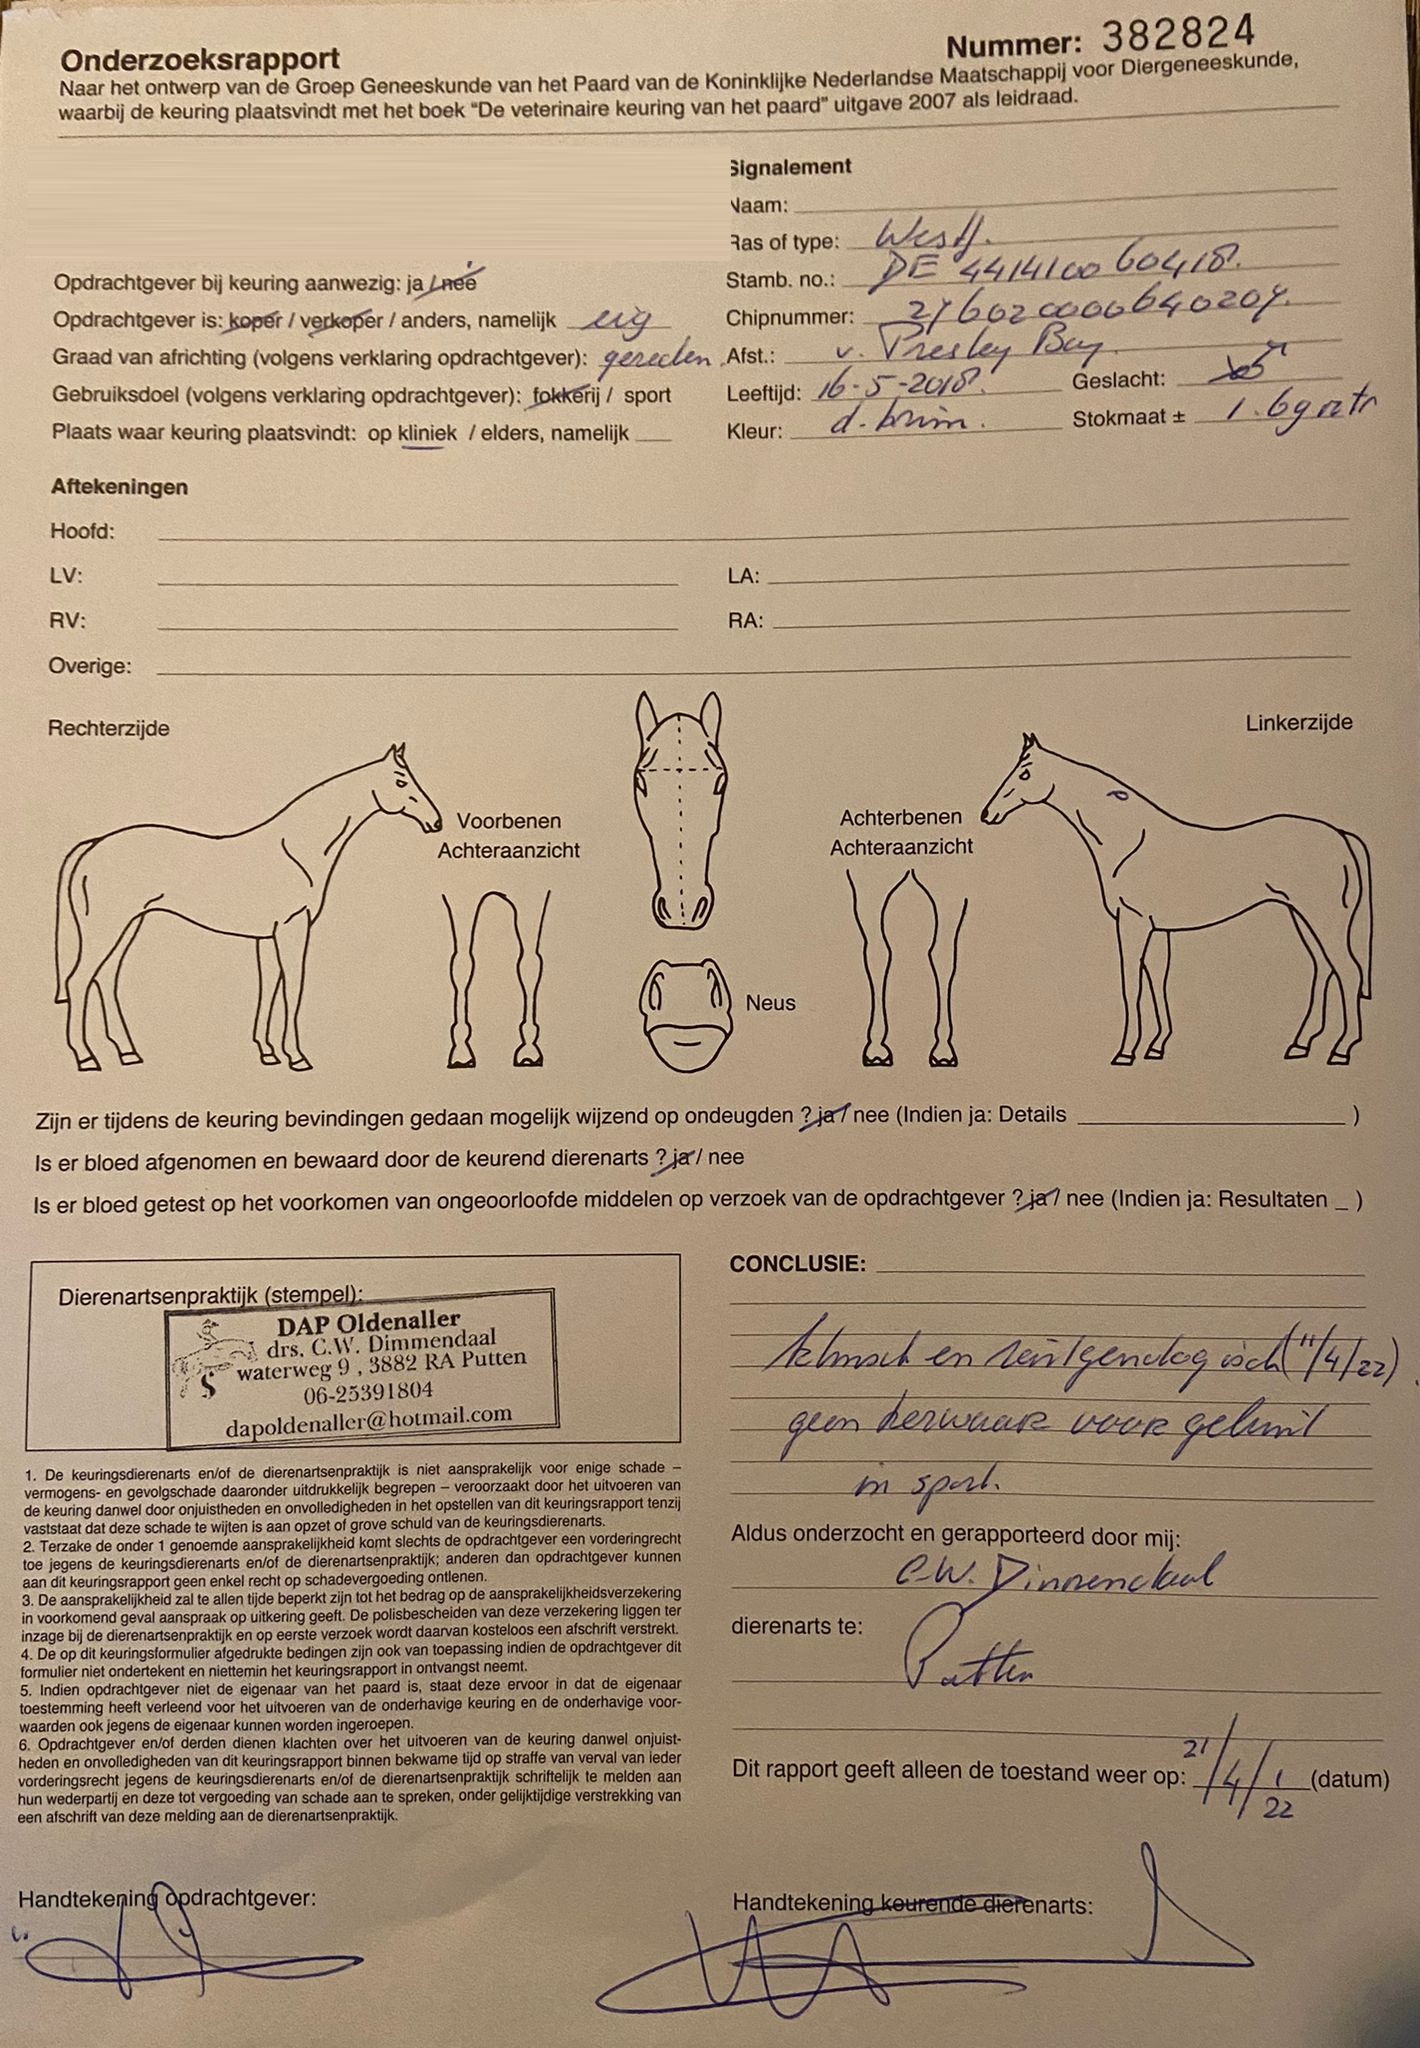 Onderzoeksrapport
Nummer: 382824
Naar het ontwerp van de Groep Geneeskunde van het Paard van de Koninklijke Nederlandse Maatschappij voor Diergeneeskunde,
waarbij de keuring plaatsvindt met het boek “De veterinaire keuring van het paard” uitgave 2007 als leidraad.
Signalement
Naam:
Ras of type: Westf.
Stamb. no.: DE 441410060418.
Opdrachtgever bij keuring aanwezig: ja / nee
Chipnummer: 276020000640204.
Opdrachtgever is: koper / verkoper / anders, namelijk eig
Afst.: v. Presley Boy
Graad van africhting (volgens verklaring opdrachtgever): gereden
Leeftijd: 16-5-2018. Geslacht:
Gebruiksdoel (volgens verklaring opdrachtgever): fokkerij / sport
Kleur: d. bruin. Stokmaat ± 1.69 mtr
Plaats waar keuring plaatsvindt: op kliniek / elders, namelijk
Aftekeningen
Hoofd:
LV: LA:
RV: RA:
Overige:
Rechterzijde
Linkerzijde
Voorbenen
Achteraanzicht
Achterbenen
Achteraanzicht
Neus
Zijn er tijdens de keuring bevindingen gedaan mogelijk wijzend op ondeugden ? ja / nee (Indien ja: Details )
Is er bloed afgenomen en bewaard door de keurend dierenarts ? ja / nee
Is er bloed getest op het voorkomen van ongeoorloofde middelen op verzoek van de opdrachtgever ? ja / nee (Indien ja: Resultaten _ )
Dierenartsenpraktijk (stempel):
DAP Oldenaller
drs. C.W. Dimmendaal
waterweg 9 , 3882 RA Putten
06-25391804
dapoldenaller@hotmail.com
1. De keuringsdierenarts en/of de dierenartsenpraktijk is niet aansprakelijk voor enige schade –
vermogens- en gevolgschade daaronder uitdrukkelijk begrepen – veroorzaakt door het uitvoeren van
de keuring danwel door onjuistheden en onvolledigheden in het opstellen van dit keuringsrapport tenzij
vaststaat dat deze schade te wijten is aan opzet of grove schuld van de keuringsdierenarts.
2. Terzake de onder 1 genoemde aansprakelijkheid komt slechts de opdrachtgever een vorderingrecht
toe jegens de keuringsdierenarts en/of de dierenartsenpraktijk; anderen dan opdrachtgever kunnen
aan dit keuringsrapport geen enkel recht op schadevergoeding ontlenen.
3. De aansprakelijkheid zal te allen tijde beperkt zijn tot het bedrag op de aansprakelijkheidsverzekering
in voorkomend geval aanspraak op uitkering geeft. De polisbescheiden van deze verzekering liggen ter
inzage bij de dierenartsenpraktijk en op eerste verzoek wordt daarvan kosteloos een afschrift verstrekt.
4. De op dit keuringsformulier afgedrukte bedingen zijn ook van toepassing indien de opdrachtgever dit
formulier niet ondertekent en niettemin het keuringsrapport in ontvangst neemt.
5. Indien opdrachtgever niet de eigenaar van het paard is, staat deze ervoor in dat de eigenaar
toestemming heeft verleend voor het uitvoeren van de onderhavige keuring en de onderhavige voor-
waarden ook jegens de eigenaar kunnen worden ingeroepen.
6. Opdrachtgever en/of derden dienen klachten over het uitvoeren van de keuring danwel onjuist-
heden en onvolledigheden van dit keuringsrapport binnen bekwame tijd op straffe van verval van ieder
vorderingsrecht jegens de keuringsdierenarts en/of de dierenartsenpraktijk schriftelijk te melden aan
hun wederpartij en deze tot vergoeding van schade aan te spreken, onder gelijktijdige verstrekking van
een afschrift van deze melding aan de dierenartsenpraktijk.
CONCLUSIE:
klinisch en röntgenologisch (11/4/22)
geen bezwaar voor gebruik
in sport.
Aldus onderzocht en gerapporteerd door mij:
C.W. Dimmendaal
dierenarts te:
Putten
Dit rapport geeft alleen de toestand weer op: 21/4/22 (datum)
Handtekening opdrachtgever:
Handtekening keurende dierenarts: